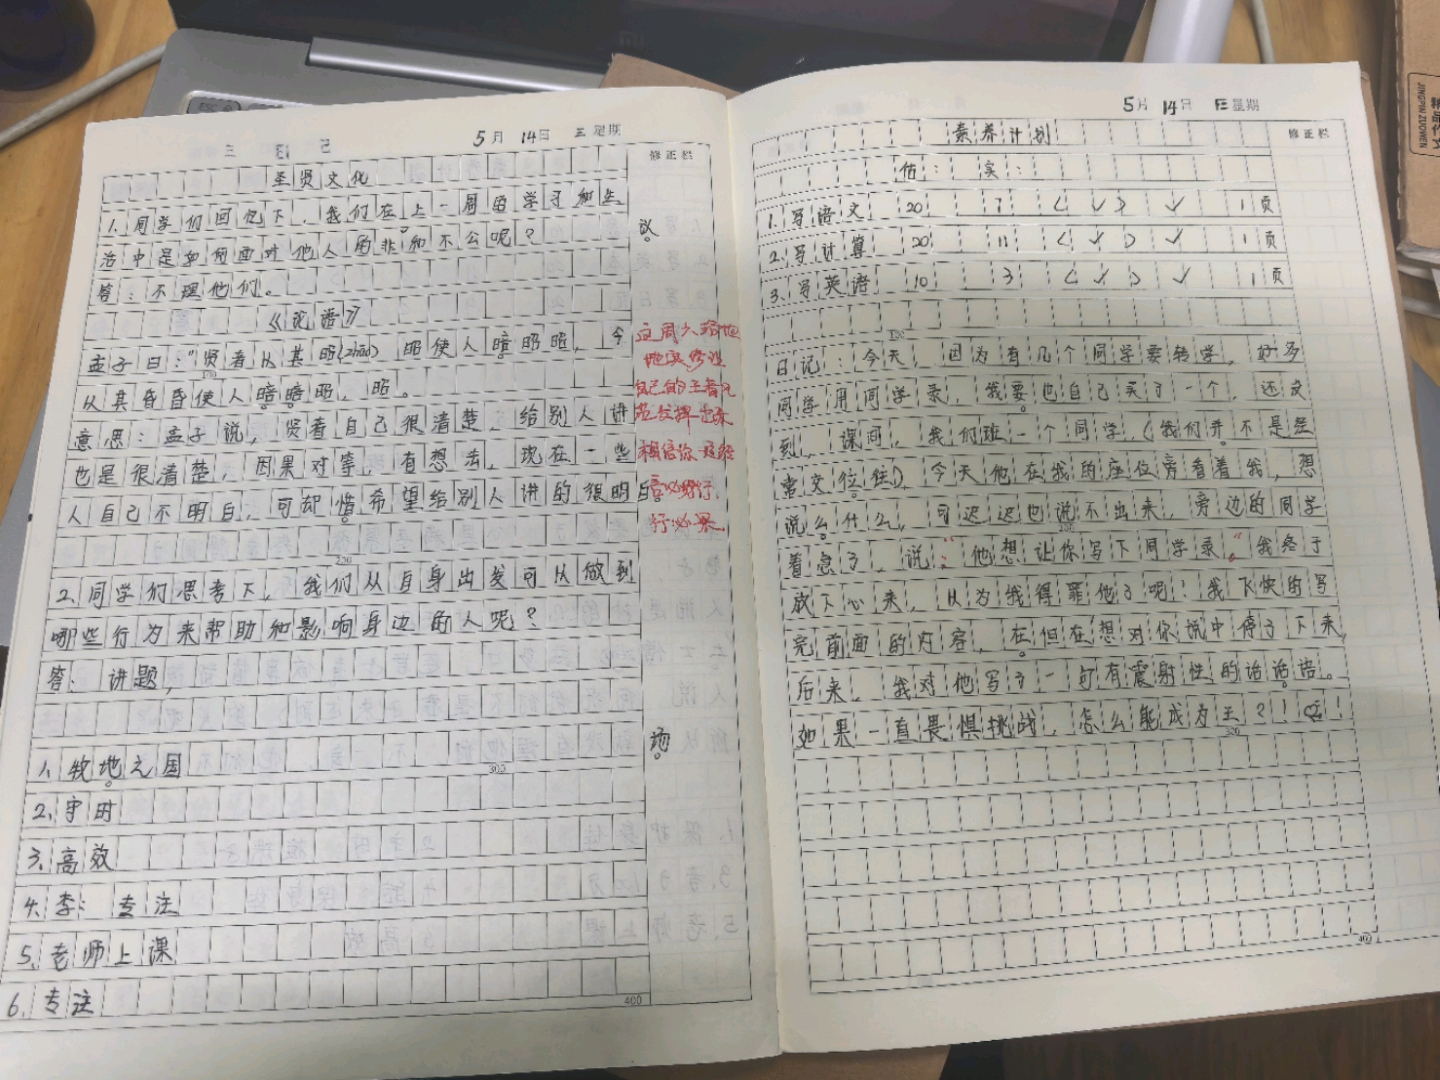 5月 14日 三 星期
修正栏
圣贤文化
1.同学们回忆下，我们在上一周的学习和生
活中是如何面对他人的非和不公呢？
议。
答：不理他们。
《论语》
孟子曰："贤者以其昭(zhāo)昭使人暗昭昭，今
以其昏昏使人暗暗昭，昭。
意思：孟子说，贤者自己很清楚，给别人讲
也是很清楚，因果对等，有想去，现在一些
人自己不明白，可却惜希望给别人讲的很明白。
200
2.同学们思考下，我们从自身出发可以做到
哪些行为来帮助和影响身边的人呢？
答：讲题，
1.牧地之国
300
场。
2.守时
3.高效
4.李：专注
5.老师上课
6.专注
400
自己的王者风
范发挥出来
相信你
言必行，
行必果。
5月 14日 三 星期
修正栏
素养计划
估： 实：
1.写语文 20 7 < ✓ > ✓ 1页
2.写计算 20 11 < ✓ > ✓ 1页
3.写英语 10 3 < ✓ > ✓ 1页
100
日记：今天，因为有几个同学要转学，好多
同学用同学录，我要也自己买了一个，还没
到，课间，我们班一个同学，(我们并不是经
常交位往)，今天他在我的座位旁看着我，想
说么什么，可迟迟也说不出来，旁边的同学
200
着急了，说："他想让你写下同学录"。我终于
放下心来，以为我得罪他了呢！我飞快的写
完前面的内容，在但在想对你说中停了下来，
后来，我对他写了一句有震射性的话话语。
如果一直畏惧挑战，怎么能成为王？！哎！
300
400
精品作文
JINGPIN ZUOWEN